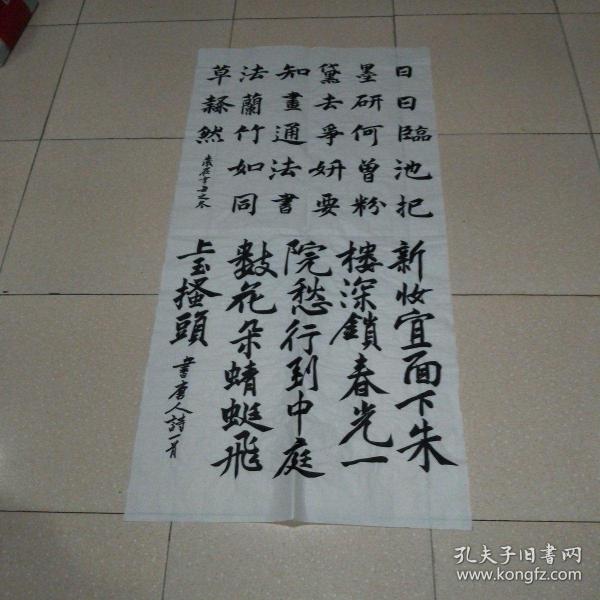 日日臨池把
墨研何曾粉
黛去爭妍要
知畫通法書
法蘭竹如同
草隸然
新妝宜面下朱
樓深鎖春光一
院愁行到中庭
數花朵蜻蜓飛
上玉搔頭
書唐人詩一首
孔夫子旧书网
www.kongfz.com